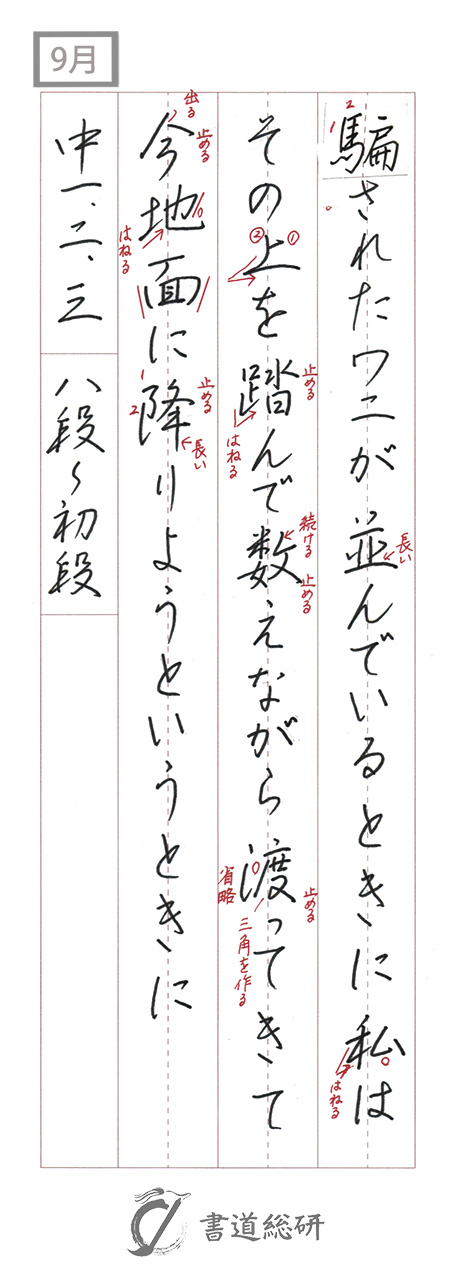 9月
騙されたワニが並んでいるときに私は
その上を踏んで数えながら渡ってきて
今地面に降りようというときに
中一、二、三 八段〜初段
2
1
長い
はねる
②
①
止める
はねる
続ける
止める
止める
省略
三角を作る
出る
止める
はねる
1
2
止める
長い
書道総研